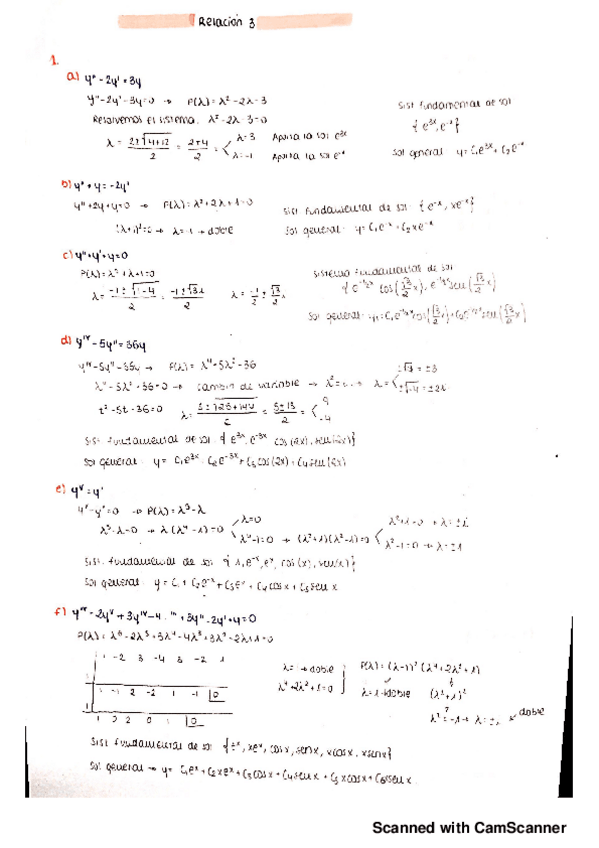 Relación 3
1.
a) y'' - 2y' = 3y
y'' - 2y' - 3y = 0 → P(λ) = λ² - 2λ - 3
Sist fundamental de sol
Resolvemos el sistema: λ² - 2λ - 3 = 0
{e^3x, e^-x}
λ = (2 ± √(4+12))/2 = (2 ± 4)/2 = λ = 3 Aporta la sol e^3x
λ = -1 Aporta la sol e^-x
Sol general y = C₁e^3x + C₂e^-x
b) y'' + y = -2y'
y'' + 2y + y = 0 → P(λ) = λ² + 2λ + 1 = 0
Sist fundamental de sol: {e^-x, xe^-x}
(λ+1)² = 0 → λ = -1 → doble
Sol general: y = C₁e^-x + C₂xe^-x
c) y'' + y' + y = 0
Sistema fundamental de sol
P(λ) = λ² + λ + 1 = 0
{e^-1/2x cos(√3/2 x), e^-1/2x sen(√3/2 x)}
λ = (-1 ± √(1-4))/2 = (-1 ± √3i)/2 λ = -1/2 ± √3/2 i
Sol general:
d) y^IV - 5y'' = 36y
y^IV - 5y'' - 36y P(λ) = λ⁴ + 5λ² - 36
λ⁴ - 5λ² - 36 = 0 → cambio de variable → λ² = t → λ = ±√9 = ±3
±√-4 = ±2i
t² - 5t - 36 = 0 λ = (5 ± √(25+144))/2 = (5 ± 13)/2 = 9
-4
Sist fundamental de sol: {e^3x, e^-3x, cos(2x), sen(2x)}
Sol general: y = C₁e^3x + C₂e^-3x + C₃cos(2x) + C₄sen(2x)
e) y^V = y'
y^V - y' = 0 → P(λ) = λ⁵ - λ
λ⁵ - λ = 0 → λ(λ⁴ - 1) = 0
λ = 0
λ⁴ - 1 = 0 → (λ²+1)(λ²-1) = 0
λ² + 1 = 0 → λ = ±i
λ² - 1 = 0 → λ = ±1
Sist. fundamental de sol {1, e^-x, e^x, cos(x), sen(x)}
Sol general: y = C₁ + C₂e^-x + C₃e^x + C₄cosx + C₅senx
f) y^VI - 2y^V + 3y^IV - 4y''' + 3y'' - 2y' + y = 0
P(λ) = λ⁶ - 2λ⁵ + 3λ⁴ - 4λ³ + 3λ² - 2λ + 1 = 0
1 -2 3 -4 3 -2 1
1 -1 2 -2 1 -1 |0
1 0 2 0 1 |0
λ = 1 → doble
λ⁴ + 2λ² + 1 = 0
P(λ) = (λ-1)² (λ⁴ + 2λ² + 1)
λ = 1 doble (λ²+1)²
λ² = -1 → λ = ±i doble
Sist fundamental de sol {e^x, xe^x, cosx, senx, xcosx, xsenx}
Sol general → y = C₁e^x + C₂xe^x + C₃cosx + C₄senx + C₅xcosx + C₆xsenx
Scanned with CamScanner